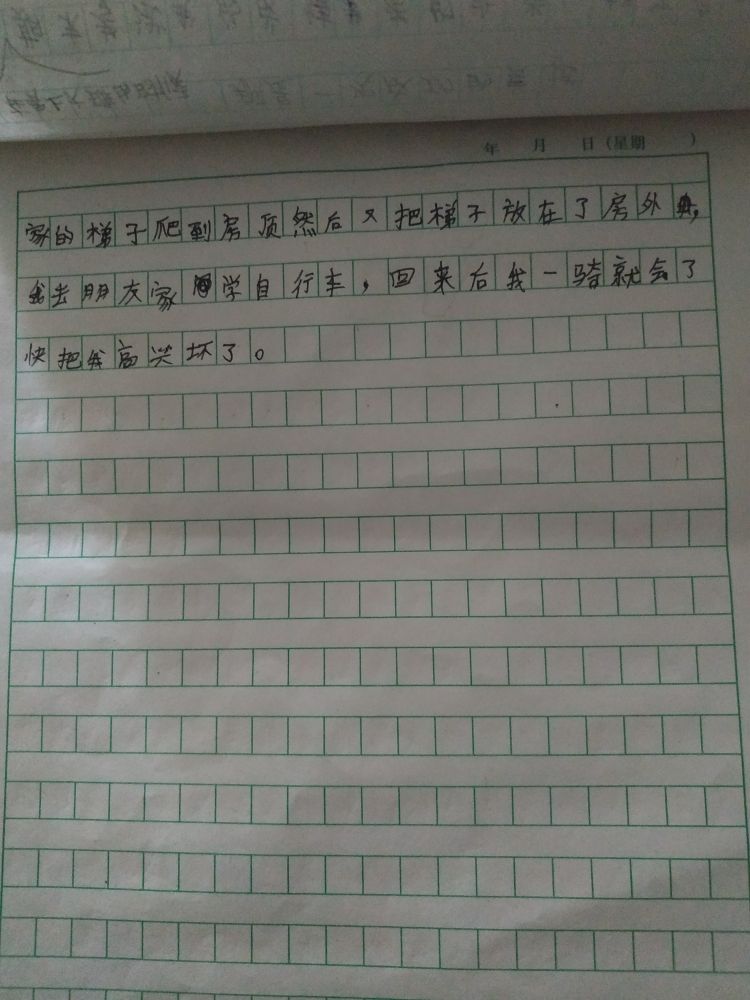 年 月 日（星期 ）
家的梯子爬到房顶然后又把梯子放在了房外，
我去朋友家学自行车，回来后我一骑就会了
快把我高兴坏了。